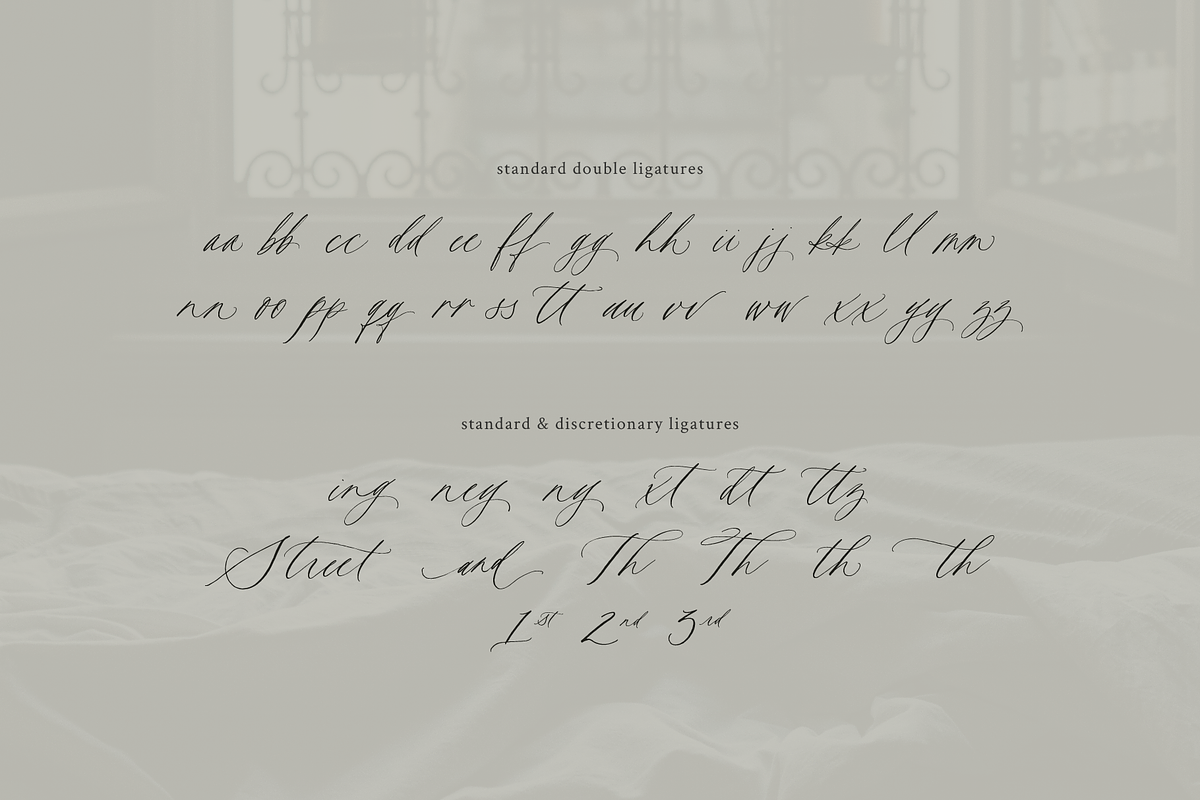 standard double ligatures
aa bb cc dd ee ff gg hh ii jj kk ll mm
nn oo pp qq rr ss tt uu vv ww xx yy zz
standard & discretionary ligatures
ing ney ny xt dt ttz
Street and Th Th th th
1st 2nd 3rd